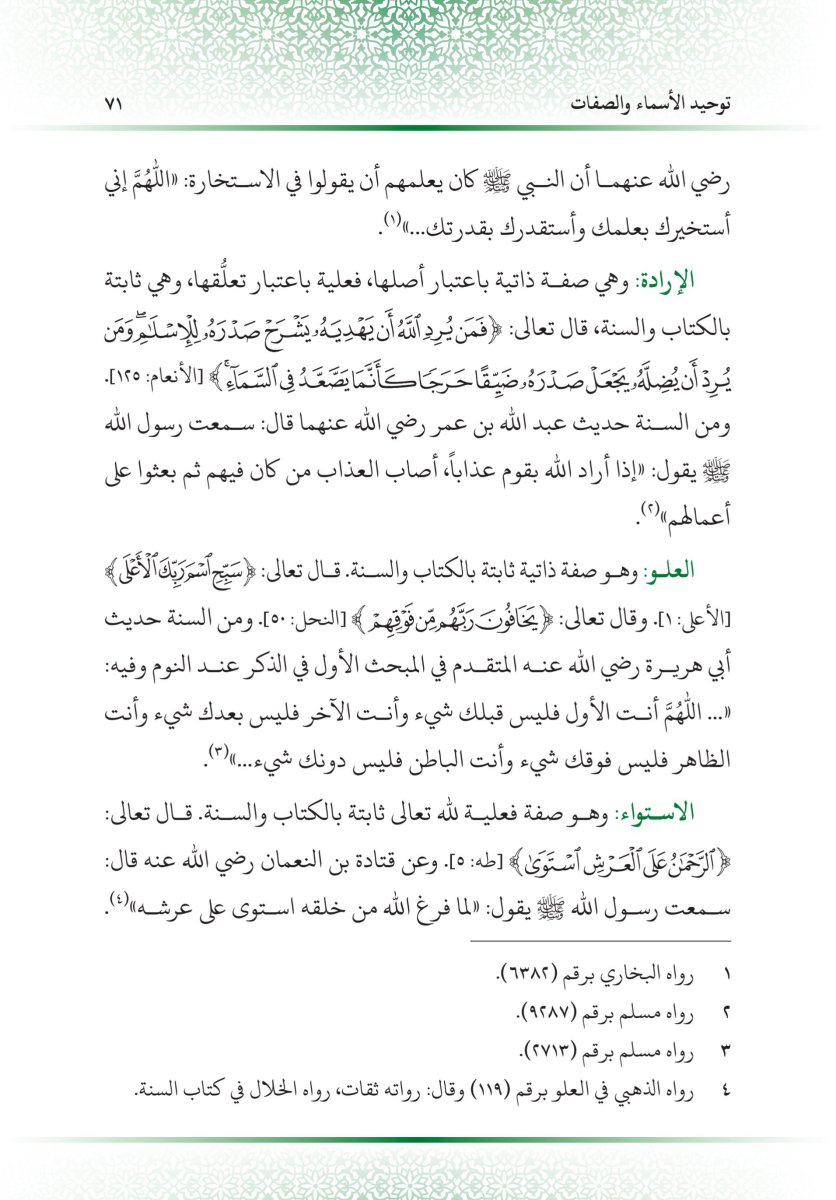 توحيد الأسماء والصفات ٧١
رضي الله عنهما أن النبي ﷺ كان يعلمهم أن يقولوا في الاستخارة: «اللَّهُمَّ إني
أستخيرك بعلمك وأستقدرك بقدرتك...»(١).
الإرادة: وهي صفة ذاتية باعتبار أصلها، فعلية باعتبار تعلُّقها، وهي ثابتة
بالكتاب والسنة، قال تعالى: ﴿فَمَن يُرِدِ ٱللَّهُ أَن يَهْدِيَهُۥ يَشْرَحْ صَدْرَهُۥ لِلْإِسْلَٰمِۖ وَمَن
يُرِدْ أَن يُضِلَّهُۥ يَجْعَلْ صَدْرَهُۥ ضَيِّقًا حَرَجًا كَأَنَّمَا يَصَّعَّدُ فِى ٱلسَّمَآءِۚ﴾ [الأنعام: ١٢٥].
ومن السنة حديث عبد الله بن عمر رضي الله عنهما قال: سمعت رسول الله
ﷺ يقول: «إذا أراد الله بقوم عذاباً، أصاب العذاب من كان فيهم ثم بعثوا على
أعمالهم»(٢).
العلو: وهو صفة ذاتية ثابتة بالكتاب والسنة. قال تعالى: ﴿سَبِّحِ ٱسْمَ رَبِّكَ ٱلْأَعْلَى﴾
[الأعلى: ١]. وقال تعالى: ﴿يَخَافُونَ رَبَّهُم مِّن فَوْقِهِمْ﴾ [النحل: ٥٠]. ومن السنة حديث
أبي هريرة رضي الله عنه المتقدم في المبحث الأول في الذكر عند النوم وفيه:
«... اللَّهُمَّ أنت الأول فليس قبلك شيء وأنت الآخر فليس بعدك شيء وأنت
الظاهر فليس فوقك شيء وأنت الباطن فليس دونك شيء...»(٣).
الاستواء: وهو صفة فعلية لله تعالى ثابتة بالكتاب والسنة. قال تعالى:
﴿ٱلرَّحْمَٰنُ عَلَى ٱلْعَرْشِ ٱسْتَوَىٰ﴾ [طه: ٥]. وعن قتادة بن النعمان رضي الله عنه قال:
سمعت رسول الله ﷺ يقول: «لما فرغ الله من خلقه استوى على عرشه»(٤).
١ رواه البخاري برقم (٦٣٨٢).
٢ رواه مسلم برقم (٩٢٨٧).
٣ رواه مسلم برقم (٢٧١٣).
٤ رواه الذهبي في العلو برقم (١١٩) وقال: رواته ثقات، رواه الخلال في كتاب السنة.